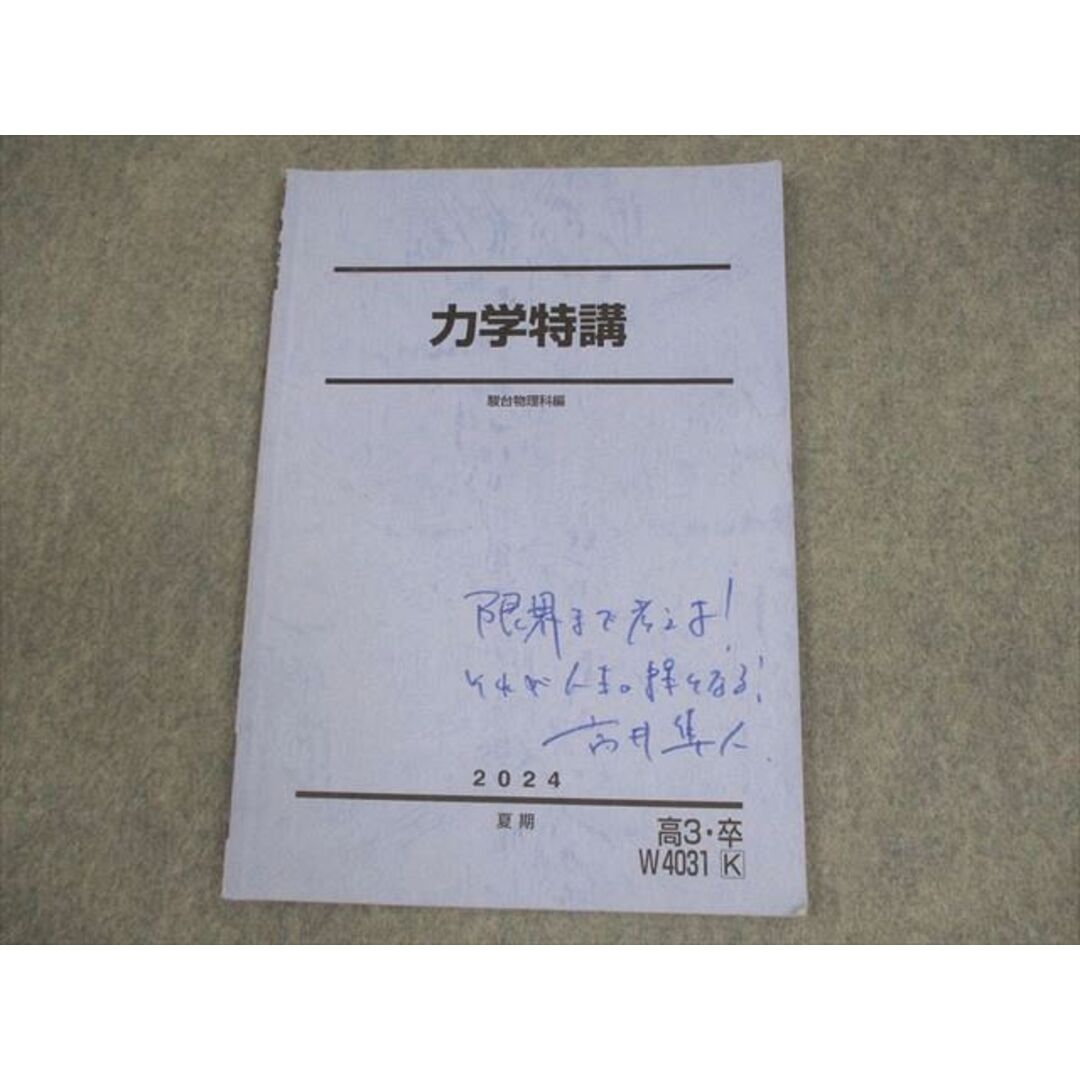 力学特講
駿台物理科編
限界まで考えよ!
それが人生の糧となる!
高井隼人
2024
夏期
高3・卒
W4031 K